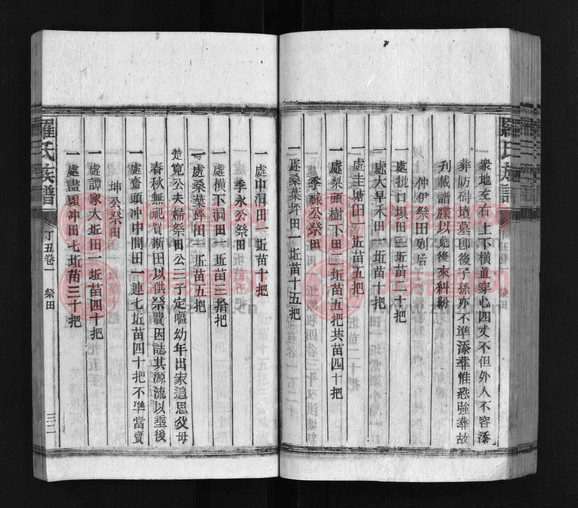 羅氏族譜
衆地左右上下橫直穿心四丈不但外人不容添
葬防碍墳墓卽後子孫亦不準添葬惟恐強葬故
刊載譜牒以免後來糾紛
仲伊祭田列后
一處扒口垻田一坵苗二十把
一處大旱禾田一坵苗
一處圭塘田一坵苗
一處梨頭樹下田一坵苗五把共苗四十把
季祿公祭田
一處桑葉坪田一坵苗十五把
一處中洞田一坵苗十把
季永公祭田
一處橫下洞田一坵苗三拾把
一處桑葉坪田一坵苗五把
楚寬公夫婦祭田公三子定颺幼年出家追思父母
春秋無祀買斯田以供祭費因誌其源流以垂後
一處奮頭冲中間田一連七坵苗四十把不準當賣
坤公祭田
一處譚家大坵田一坵苗四十把
一處盡頭冲田七坵苗三十把
羅氏族譜
丁丑卷一
祭田
三二